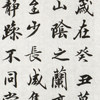 歲在癸丑暮
山陰之蘭亭
至少長咸集
静躁不同當